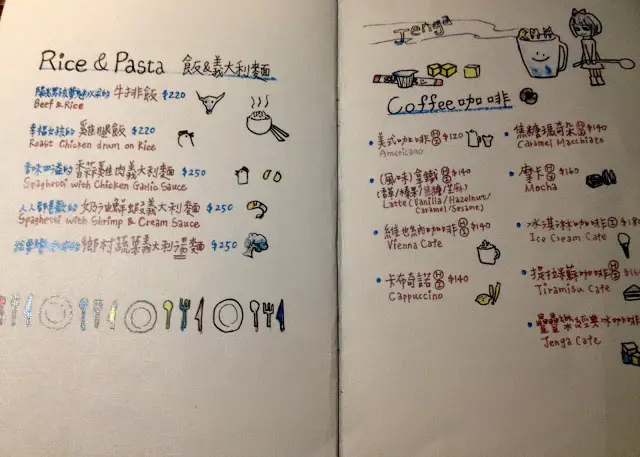 Rice & Pasta 飯&義大利麵
牛排飯 $220
Beef & Rice
幸福女孩的 雞腿飯 $220
Roast Chicken drum on Rice
香味四溢的 香蒜雞肉義大利麵 $250
Spaghetti with Chicken Garlic Sauce
人人都喜歡的 奶油鮮蝦義大利麵 $250
Spaghetti with Shrimp & Cream Sauce
鄉村蔬菜義大利湯麵 $250
Jenga
Coffee 咖啡
美式咖啡 $120
Americano
(風味)拿鐵 $140
(香草/榛果/焦糖/芝麻)
Latte (Vanilla/Hazelnut/
Caramel/Sesame)
維也納咖啡 $140
Vienna Cafe
卡布奇諾 $140
Cappuccino
焦糖瑪奇朵 $140
Caramel Macchiato
摩卡 $160
Mocha
冰淇淋咖啡 $180
Ice Cream Cafe
提拉米蘇咖啡 $16
Tiramisu Cafe
經典冰咖啡
Jenga Cafe